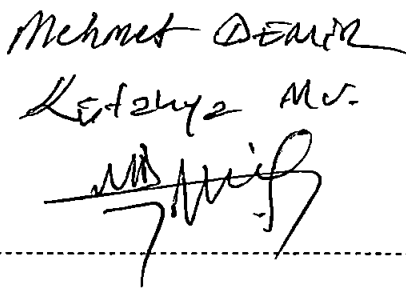 Mehmet DEMİR
Kütahya Mv.